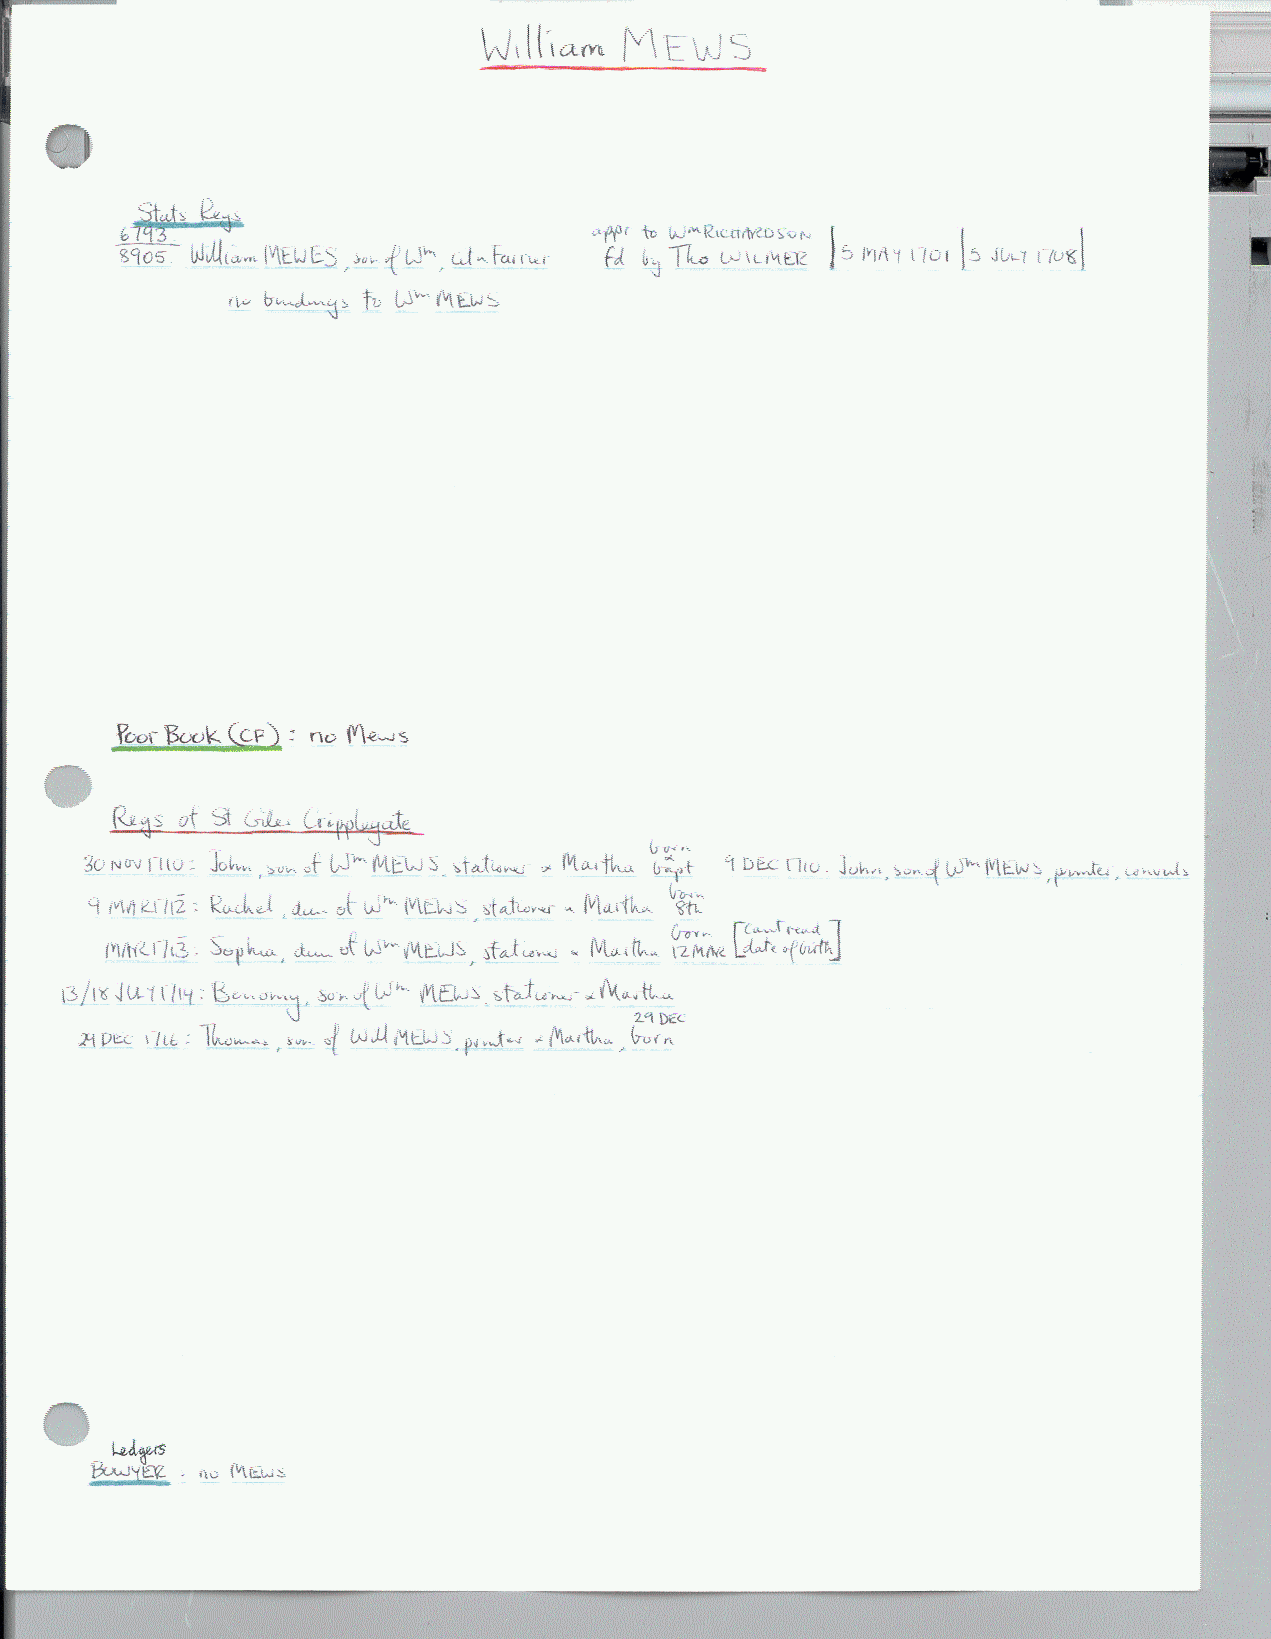 William MEWS
Stats Regs
6793
8905. William MEWES, son of Wm, cit & Farrier
appr to Wm RICHARDSON
fd by Tho WILMER | 5 MAY 1701 | 5 JULY 1708 |
no bindings to Wm MEWS
Poor Book (CF) : no Mews
Regs of St Giles Cripplegate
30 NOV 1710 : John, son of Wm MEWS, stationer & Martha born & bapt
9 DEC 1710. John, son of Wm MEWS, printer,
9 MAR 1712 : Rachel, dau of Wm MEWS, stationer & Martha born 8th
MAR 1713 : Sophia, dau of Wm MEWS, stationer & Martha born 12 MAR [can't read date of birth]
13/18 JULY 1714 : Benomy, son of Wm MEWS, stationer & Martha
29 DEC 1716 : Thomas, son of Will MEWS, printer & Martha, born 29 DEC
Ledgers
BOWYER . no MEWS